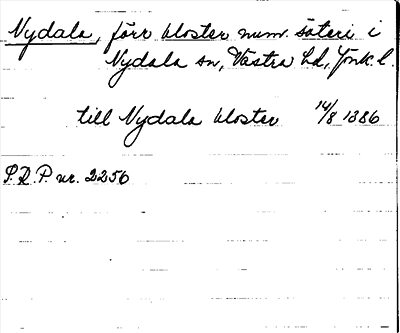 Nydala, förr kloster num. säteri i
Nydala sn, Västra hd, Jönk. l.
till Nydala kloster 14/8 1386
S.R.P. nr. 2256